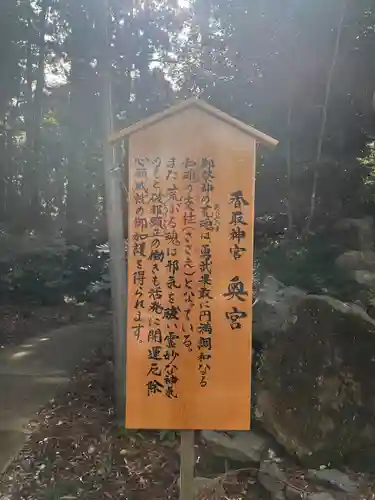 香取神宮 奥宮
御祭神の荒魂は勇武果敢に円満調和なる
和魂の支社(ささえ)となっている。
また荒ぶる魂は邪気を祓い霊妙な神気
のもと破邪顕正の働きも活発に開運厄除
心願成就の御加護を得られます。